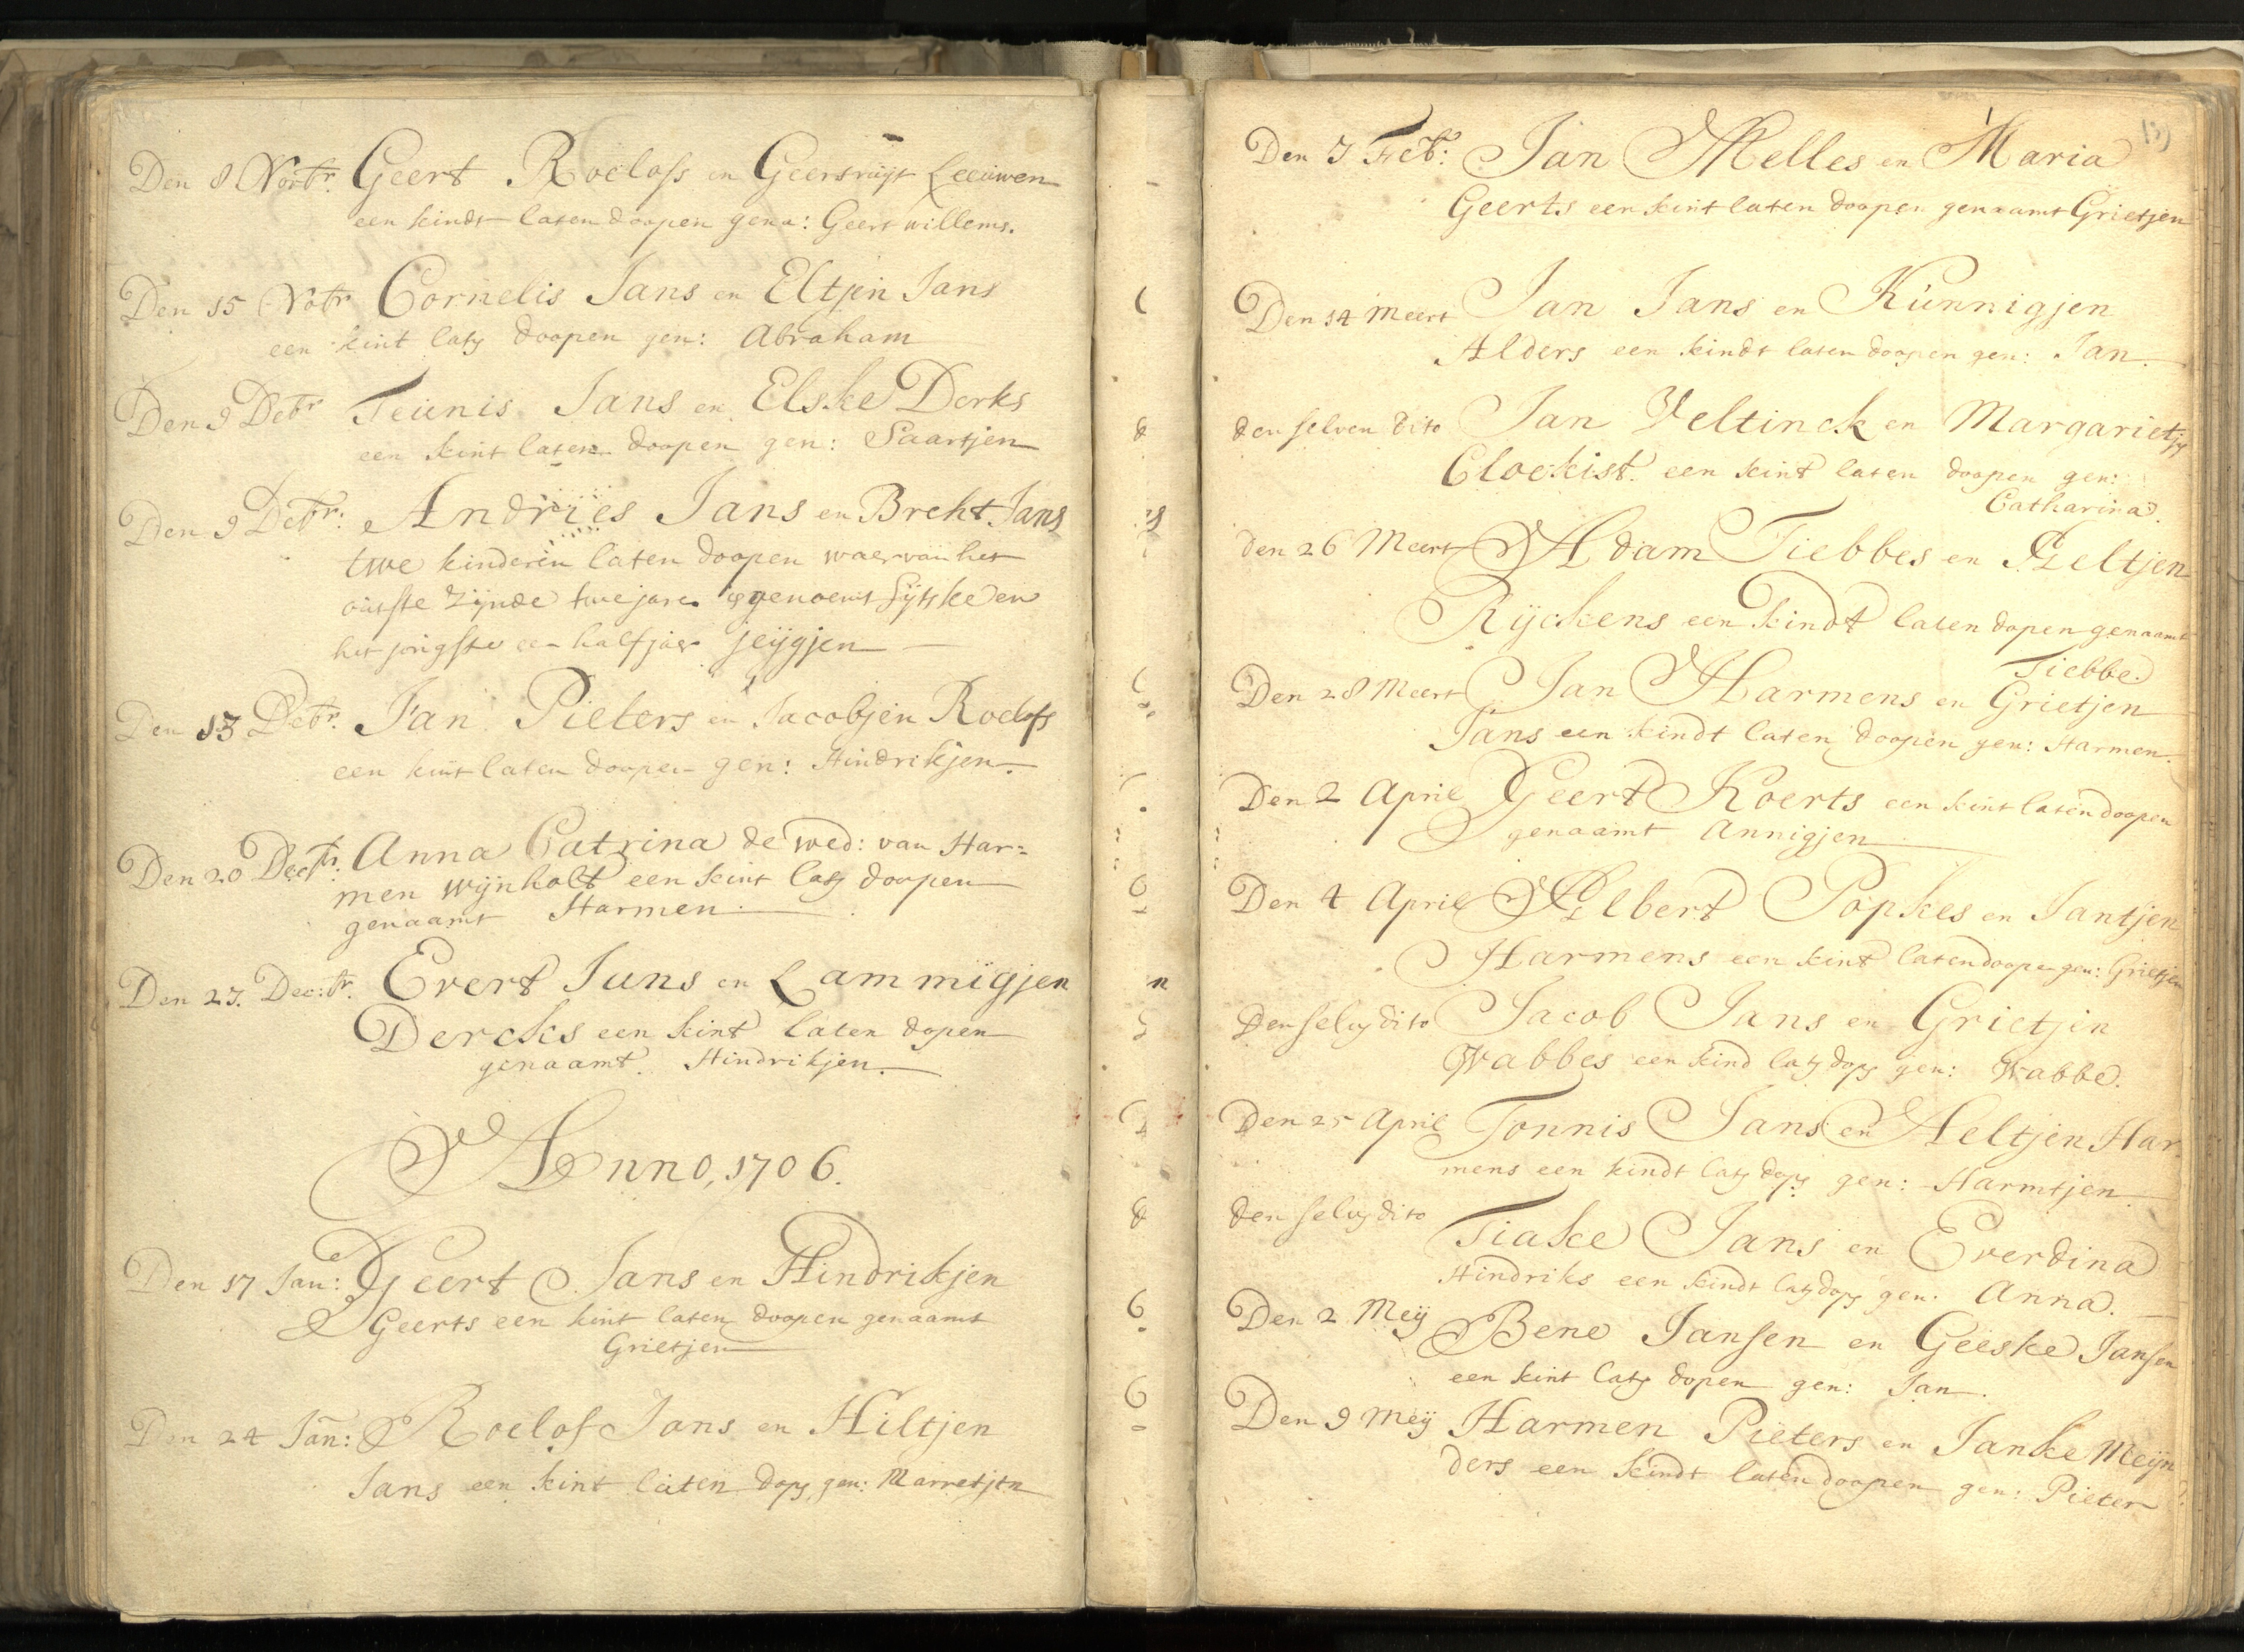 Den 8 Novbr. Geert Roelofs en Geersruijt Leeuwen
een kindt laten doopen gena: Geert willems.
Den 15 Nobr Cornelis Jans en Eltjen Jans
een kint laty doopen gen: Abraham
Den 9 Debr Teunis Jans en Elske Derks
een kint laten doopen gen: Saartjen
Den 9 Debr: Andries Jans en Breht Jans
twe kinderen laten doopen waervan het
outste zijnde twe jare is genoemt Sijtske en
het jongste een half jaer jeijgjen
Den 13 Debr. Jan Pieters en Jacobjen Roelofs
een kint laten doopen gen: Hindrikjen.
Den 20 Decbr. Anna Catrina de wed: van Har=
men Wijnholt een kint laty doopen
genaamt Harmen.
Den 27. Dec:br. Evert Jans en Lammigjen
Dercks een kint laten dopen
genaamt. Hindrikjen.
Anno, 1706.
Den 17 Jan: Geert Jans en Hindrikjen
Geerts een kint laten doopen genaamt
Grietjen
Den 24 Jan: Roelof Jans en Hiltjen
Jans een kint laten dopy gen: Marretjen
Den 7 Feb: Jan Melles en Maria
Geerts een kint laten doopen genaamt Grietjen
Den 14 Meert Jan Jans en Kunnigjen
Alders een kindt laten doopen gen: Jan.
den selven dito Jan Veltinck en Margarietjy
Clockist. een kint laten doopen gen:
Catharina.
den 26 Meert Adam Tiebbes en Aeltjen
Rijckens een kindt laten dopen genaamt
Tiebbe.
Den 28 Meert Jan Harmens en Grietjen
Jans een kindt laten doopen gen: Harmen.
Den 2 April Geert Koerts een kint laten doopen
genaamt Annigjen
Den 4 April Albert Popkes en Jantjen
Harmens een kint laten doopen gen: Grietjen
Den selvy dito Jacob Jans en Grietjen
Wabbes een kind laty dopy gen: Wabbe.
Den 25 April Tonnis Jans en Aeltjen Har
mens een kindt laty dopy gen: Harmtjen
den selvy dito Tiake Jans en Everdina
Hindriks een kindt laty dopy gen: Anna.
Den 2 Meij Bene Jansen en Geeske Jansen
een kint laty dopen gen: Jan.
Den 9 Meij Harmen Pieters en Janke Meijn
ders een kindt laten doopen gen: Pieter